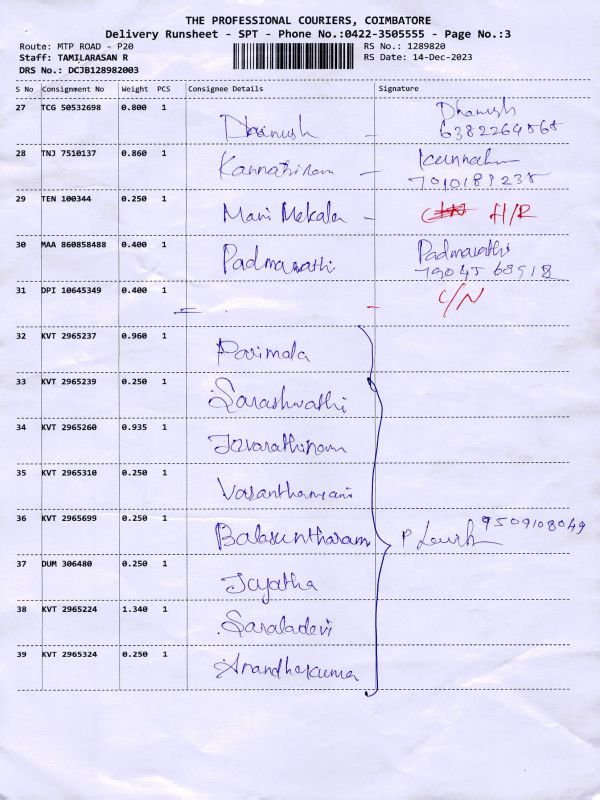 THE PROFESSIONAL COURIERS, COIMBATORE
Delivery Runsheet - SPT - Phone No.:0422-3505555 - Page No.:3
Route: MTP ROAD - P20 RS No.: 1289820
Staff: TAMILARASAN R RS Date: 14-Dec-2023
DRS No.: DCJB128982003
S No Consignment No Weight PCS Consignee Details Signature
27 TCG 50532698 0.800 1
Dhanush - Dhanush
6382264868
28 TNJ 7510137 0.860 1
Kannathiram -
7010189238
29 TEN 100344 0.250 1
Mani Mekala - H/R
30 MAA 860858488 0.400 1
Padmavathi Padmavathi
79045 68918
31 DPI 10645349 0.400 1
- C/N
32 KVT 2965237 0.960 1
Parimala
33 KVT 2965239 0.250 1
Sarashwathi
34 KVT 2965260 0.935 1
35 KVT 2965310 0.250 1
Vasanthamani
36 KVT 2965699 0.250 1
Balasuntharam P 9509108049
37 DUM 306480 0.250 1
Jayatha
38 KVT 2965224 1.340 1
Saraladevi
39 KVT 2965324 0.250 1
Anandhakumar